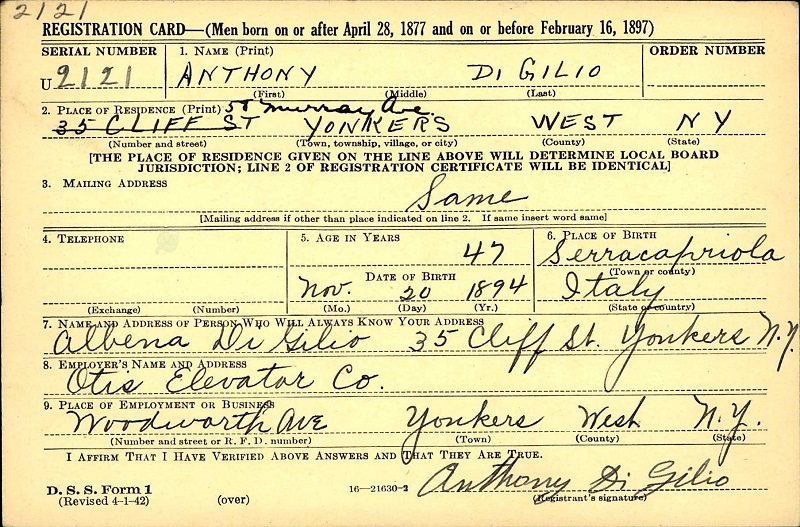 2121
REGISTRATION CARD—(Men born on or after April 28, 1877 and on or before February 16, 1897)
SERIAL NUMBER 1. NAME (Print) ORDER NUMBER
U 2121 ANTHONY DI GILIO
(First) (Middle) (Last)
2. PLACE OF RESIDENCE (Print) Murray Ave
35 CLIFF ST YONKERS WEST NY
(Number and street) (Town, township, village, or city) (County) (State)
[THE PLACE OF RESIDENCE GIVEN ON THE LINE ABOVE WILL DETERMINE LOCAL BOARD
JURISDICTION; LINE 2 OF REGISTRATION CERTIFICATE WILL BE IDENTICAL]
3. MAILING ADDRESS
Same
[Mailing address if other than place indicated on line 2. If same insert word same]
4. TELEPHONE 5. AGE IN YEARS 6. PLACE OF BIRTH
47 Serracapriola
(Town or county)
DATE OF BIRTH
Nov. 20 1894 Italy
(Exchange) (Number) (Mo.) (Day) (Yr.) (State or country)
7. NAME AND ADDRESS OF PERSON WHO WILL ALWAYS KNOW YOUR ADDRESS
Albena Di Gilio 35 Cliff St. Yonkers N.Y.
8. EMPLOYER'S NAME AND ADDRESS
Otis Elevator Co.
9. PLACE OF EMPLOYMENT OR BUSINESS
Woodworth Ave Yonkers West. N.Y.
(Number and street or R. F. D. number) (Town) (County) (State)
I AFFIRM THAT I HAVE VERIFIED ABOVE ANSWERS AND THAT THEY ARE TRUE.
Anthony Di Gilio
D. S. S. Form 1 16—21630-2 (Registrant's signature)
(Revised 4-1-42) (over)